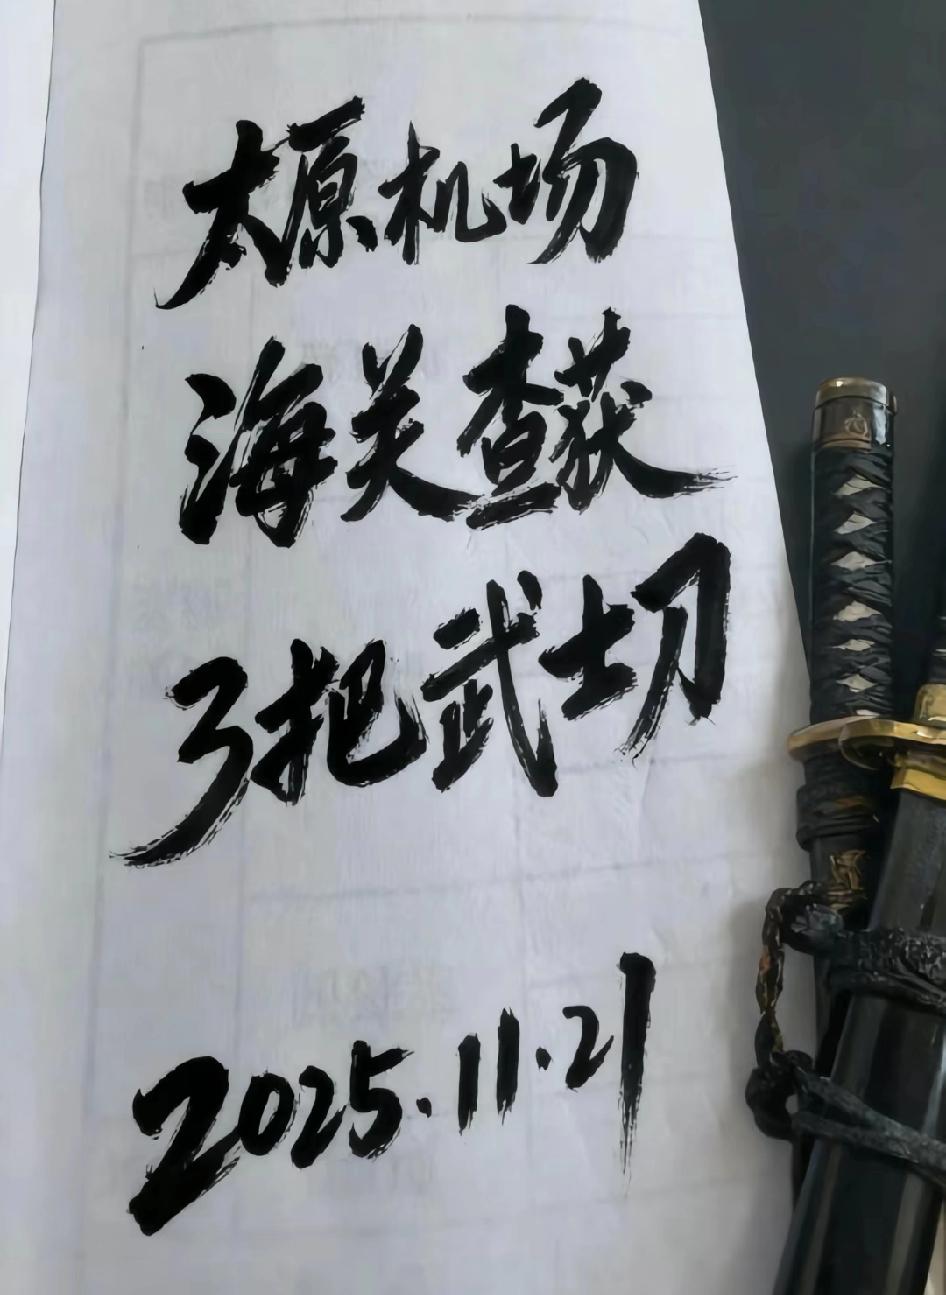 太原机场
海关查获
3把武士刀
2025.11.21